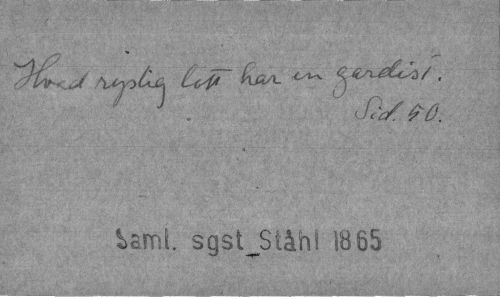 Hvad ryslig lott har en gardist.
Sid. 50.
Saml. sgst Ståhl 1865